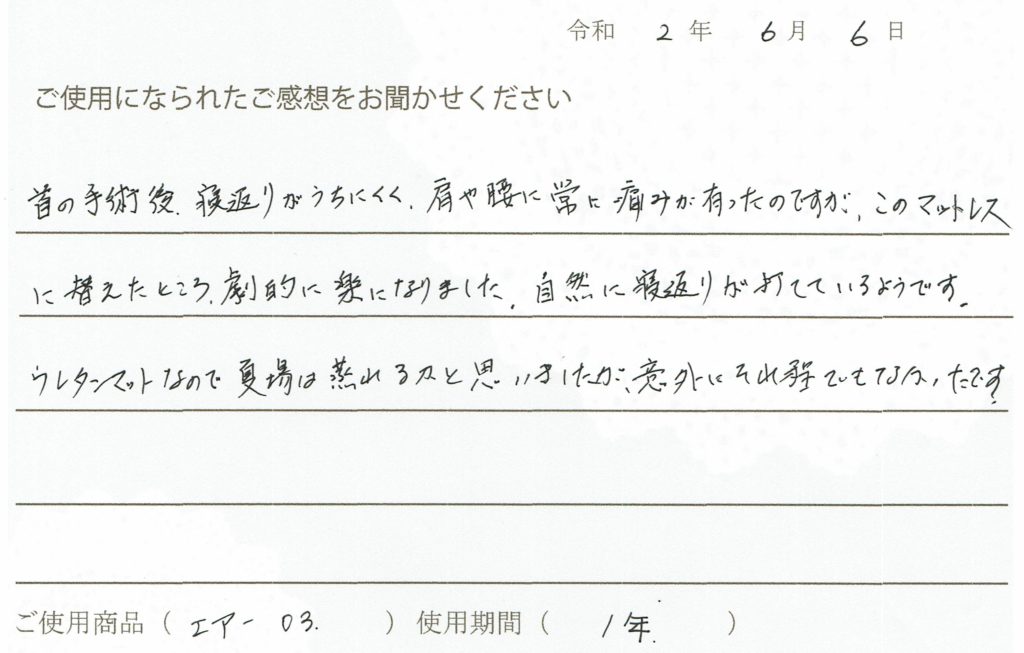 令和 2 年 6 月 6 日
ご使用になられたご感想をお聞かせください
首の手術後、寝返りがうちにくく、肩や腰に常に痛みが有ったのですが、このマットレス
に替えたところ、劇的に楽になりました。自然に寝返りが打てているようです。
ウレタンマットなので夏場は蒸れるかと思いましたが、意外にそれ程でもなかったです。
ご使用商品（ エアー 03. ） 使用期間（ 1年. ）